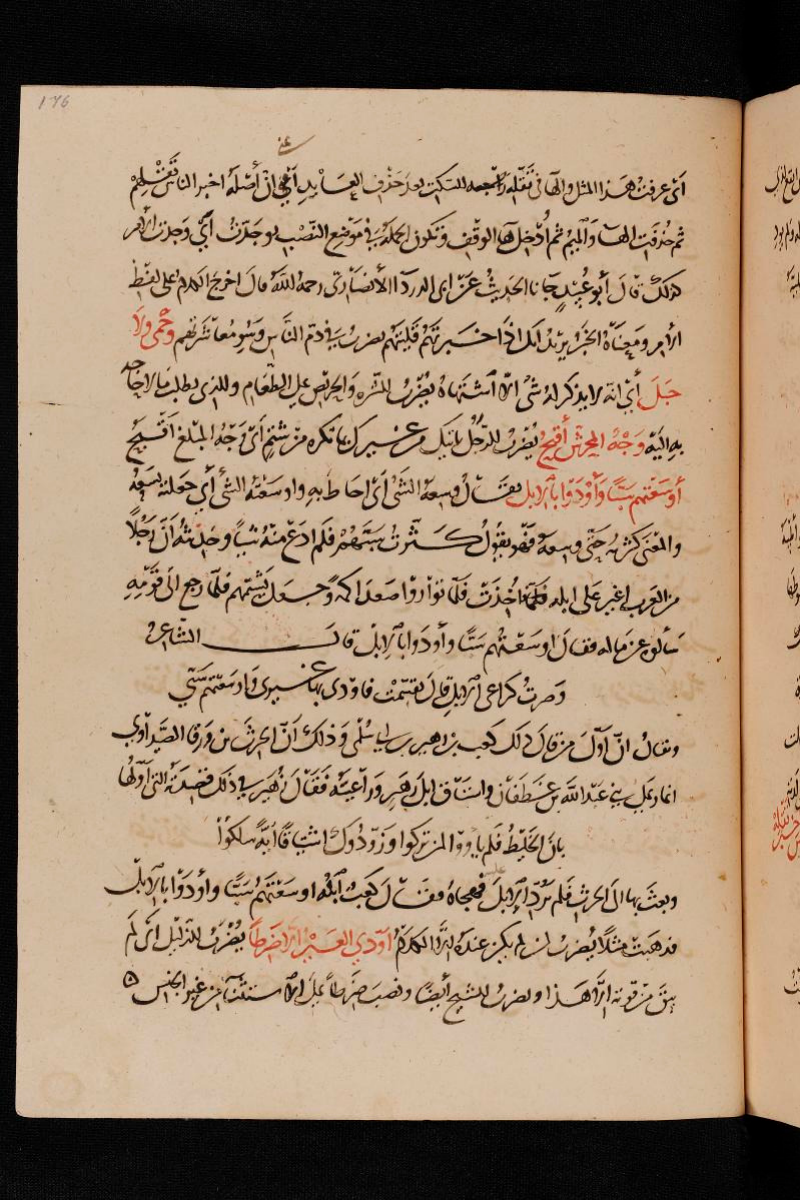 176
أي عرفت هذا المثل والها في تقله للسكت بعد حذف العايد أعني ان أصله اخبر الناس تقلهم
ثم حذفت الها والميم ثم أدخل ها الوقف وتكون الجملة في موضع النصب بوجدت أي وجدت الامر
كذلك قال أبو عبيد جانا الحديث عن ابى الدرداء الأنصارى رحمه الله قال اخرج الكلام على لفظ
الأمر ومعناه الخبر يريد انك اذا خبرتهم قليتهم يضرب في ذم الناس وسو معاشرتهم وحمى ولا
حبل أي انه لا يذكر له شى الا اشتهاه يضرب للشره والحريص على الطعام وللذى يطلب ما لا حاجه
به اليه وجه المحرش أقبح يضرب للرجل ياتيك من غيرك بما تكره من شتم أي وجه المبلغ اقبح
أوسعتهم سبا وأودوا بالابل يقال وسعه الشى أي احاط به واوسعته الشئ أي جعلته يسعه
والمعنى كثرته حتى وسعه فهو يقول كثرت سبهم فلم ادع منه شيا وحديثه أن رجلا
من العرب اغير على ابله فاخذت فلما تواروا صعد اكمة وجعل يشتمهم فلما رجع الى قومه
سألوه عن ماله فقال اوسعتهم سبا وأودوا بالابل قال الشاعر
وصرت كراعى الابل قال تقسمت فاودى بها غيرى واوسعتهم سبى
ويقال ان أول من قال ذلك كعب بن زهير بن ابي سلمى وذلك أن الحرث بن ورقا الصيداوي
اغار على بني عبد الله بن غطفان واستاق ابل زهير وراعيه فقال زهير في ذلك قصيدته التى أولها
بان الخليط فلم ياووا لمن تركوا وزودوك اشتياقا أية سلكوا
وبعث بها الى الحرث فلم يرد الابل فهجاه فقال كعب ابنه اوسعتهم سبا وأودوا بالابل
فذهبت مثلا يضرب لمن لم يكن عنده الا الكلام أودي العير الا ضرطا يضرب للذليل اى لم
يبق من قوته الا هذا ويضرب للشيخ أيضا ونصب ضرطا على الاستثنا من غير الجنس